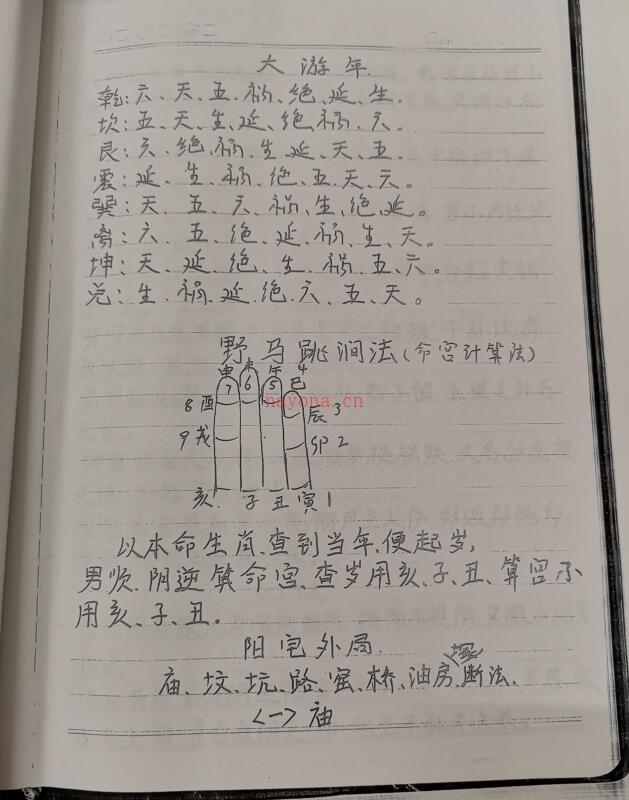 大游年
乾：六、天、五、祸、绝、延、生。
坎：五、天、生、延、绝、祸、六。
艮：六、绝、祸、生、延、天、五。
震：延、生、祸、绝、五、天、六。
巽：天、五、六、祸、生、绝、延。
离：六、五、绝、延、祸、生、天。
坤：天、延、绝、生、祸、五、六。
兑：生、祸、延、绝、六、五、天。
野马跳涧法（命宫计算法）
申 未 午 4
7 6 5 巳
nayona.cn
8 酉 辰 3
9 戌 卯 2
亥 子 丑 寅 1
以本命生肖、查到当年、便起岁，
男顺、阴逆算命宫、查岁用亥、子、丑、算宫不
用亥、子、丑。
阳宅外局
庙、坟、坑、路、窑、桥、油房、断法。
<一> 庙